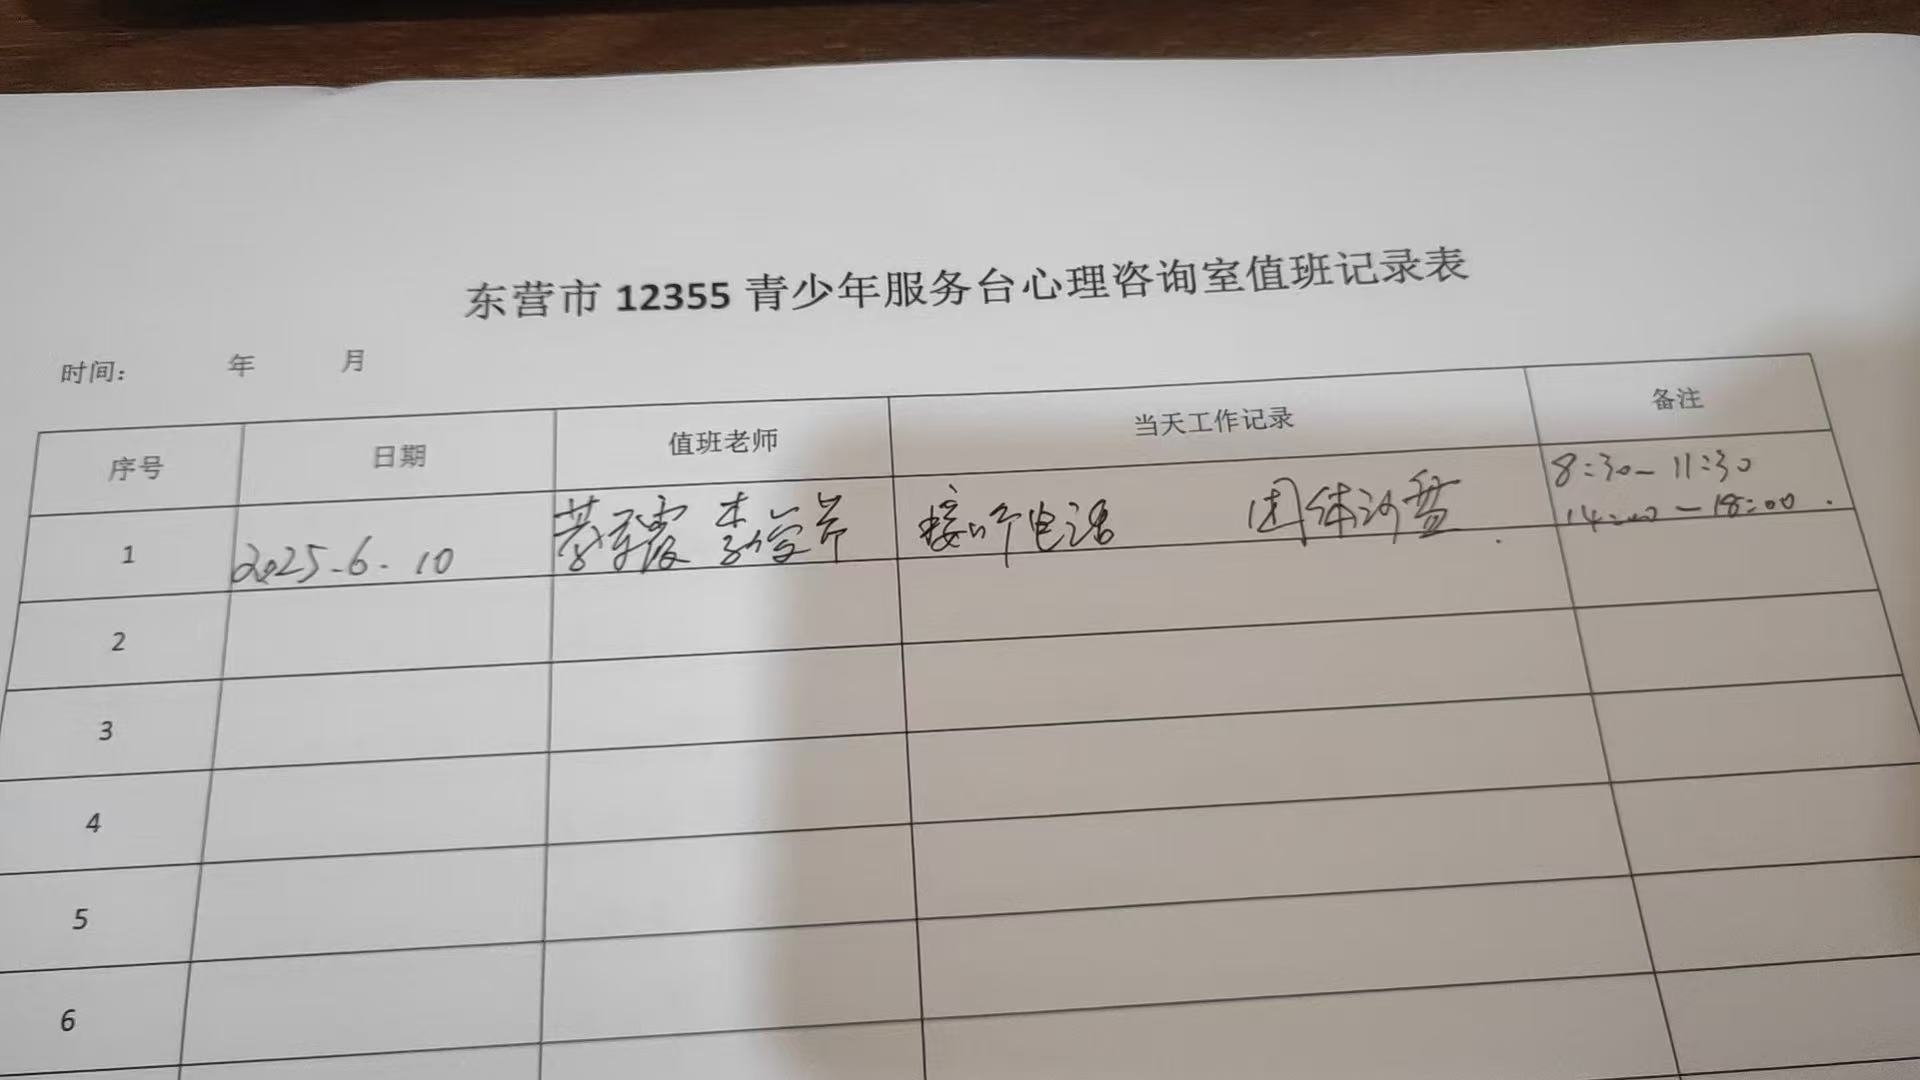 东营市 12355 青少年服务台心理咨询室值班记录表
时间: 年 月
序号 日期 值班老师 当天工作记录 备注
1 2025.6.10 接听电话 团体沙盘. 8:30-11:30
14:00-18:00.
2
3
4
5
6